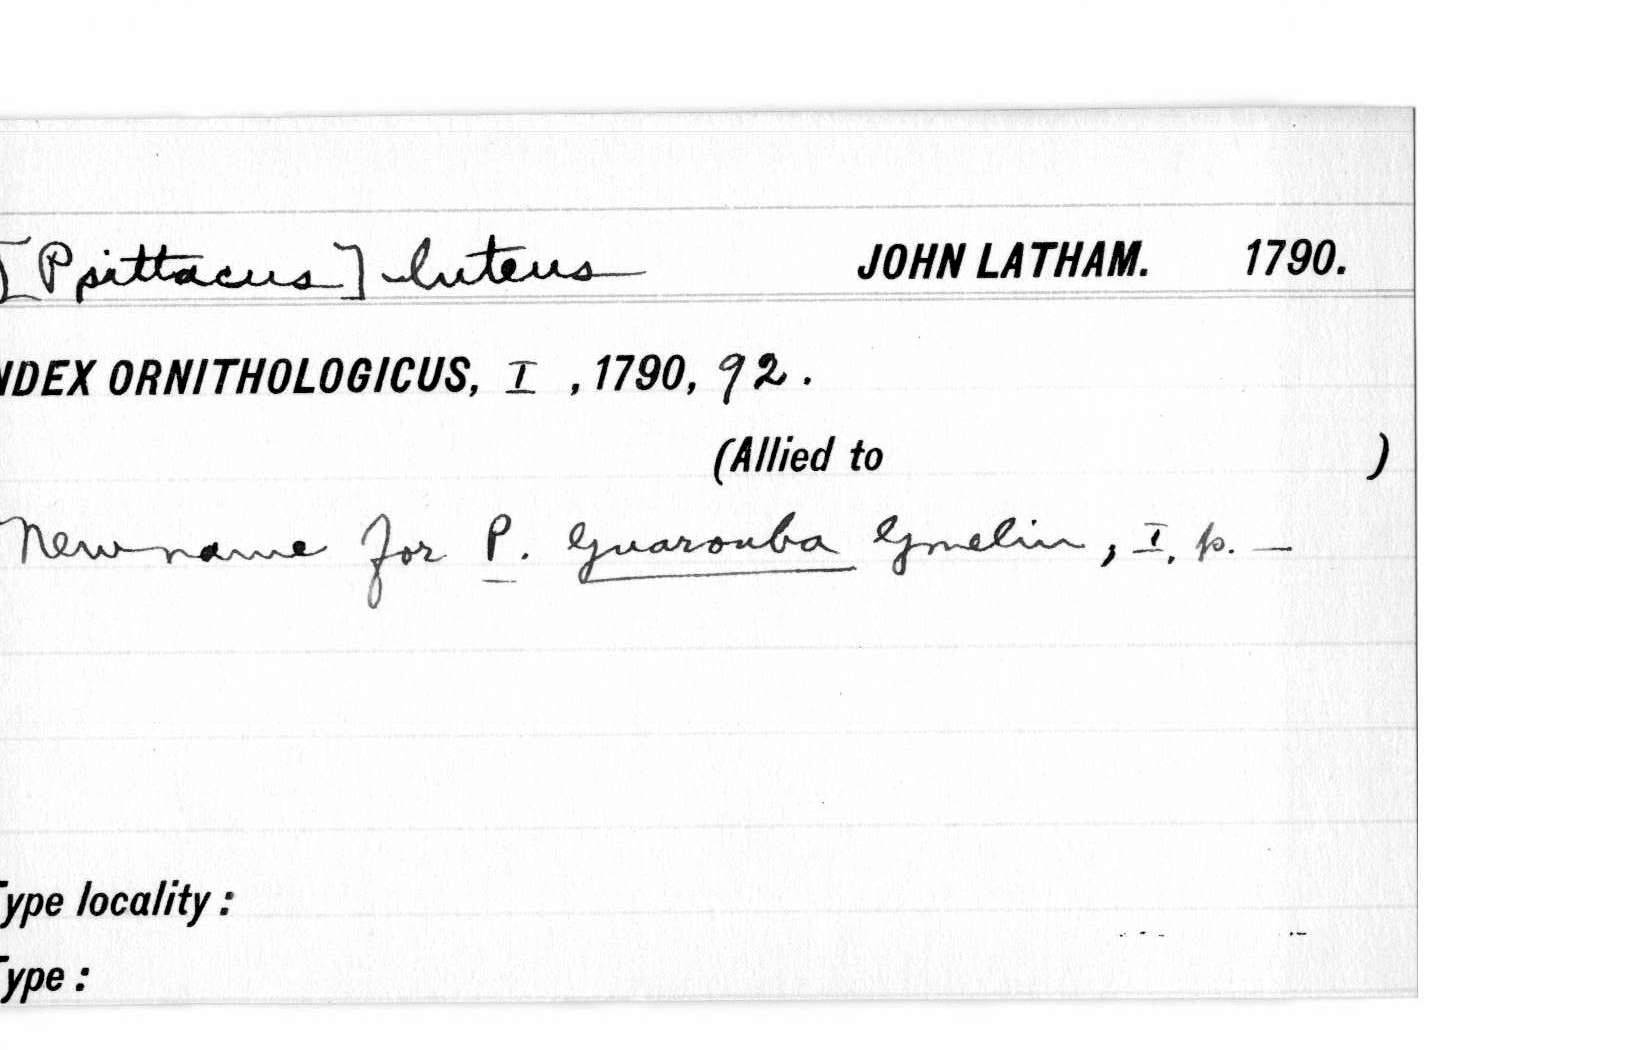 [Psittacus] luteus JOHN LATHAM. 1790.
NDEX ORNITHOLOGICUS, I , 1790, 92.
(Allied to )
New name for P. Guarouba Gmelin, I, p. —
Type locality :
Type :